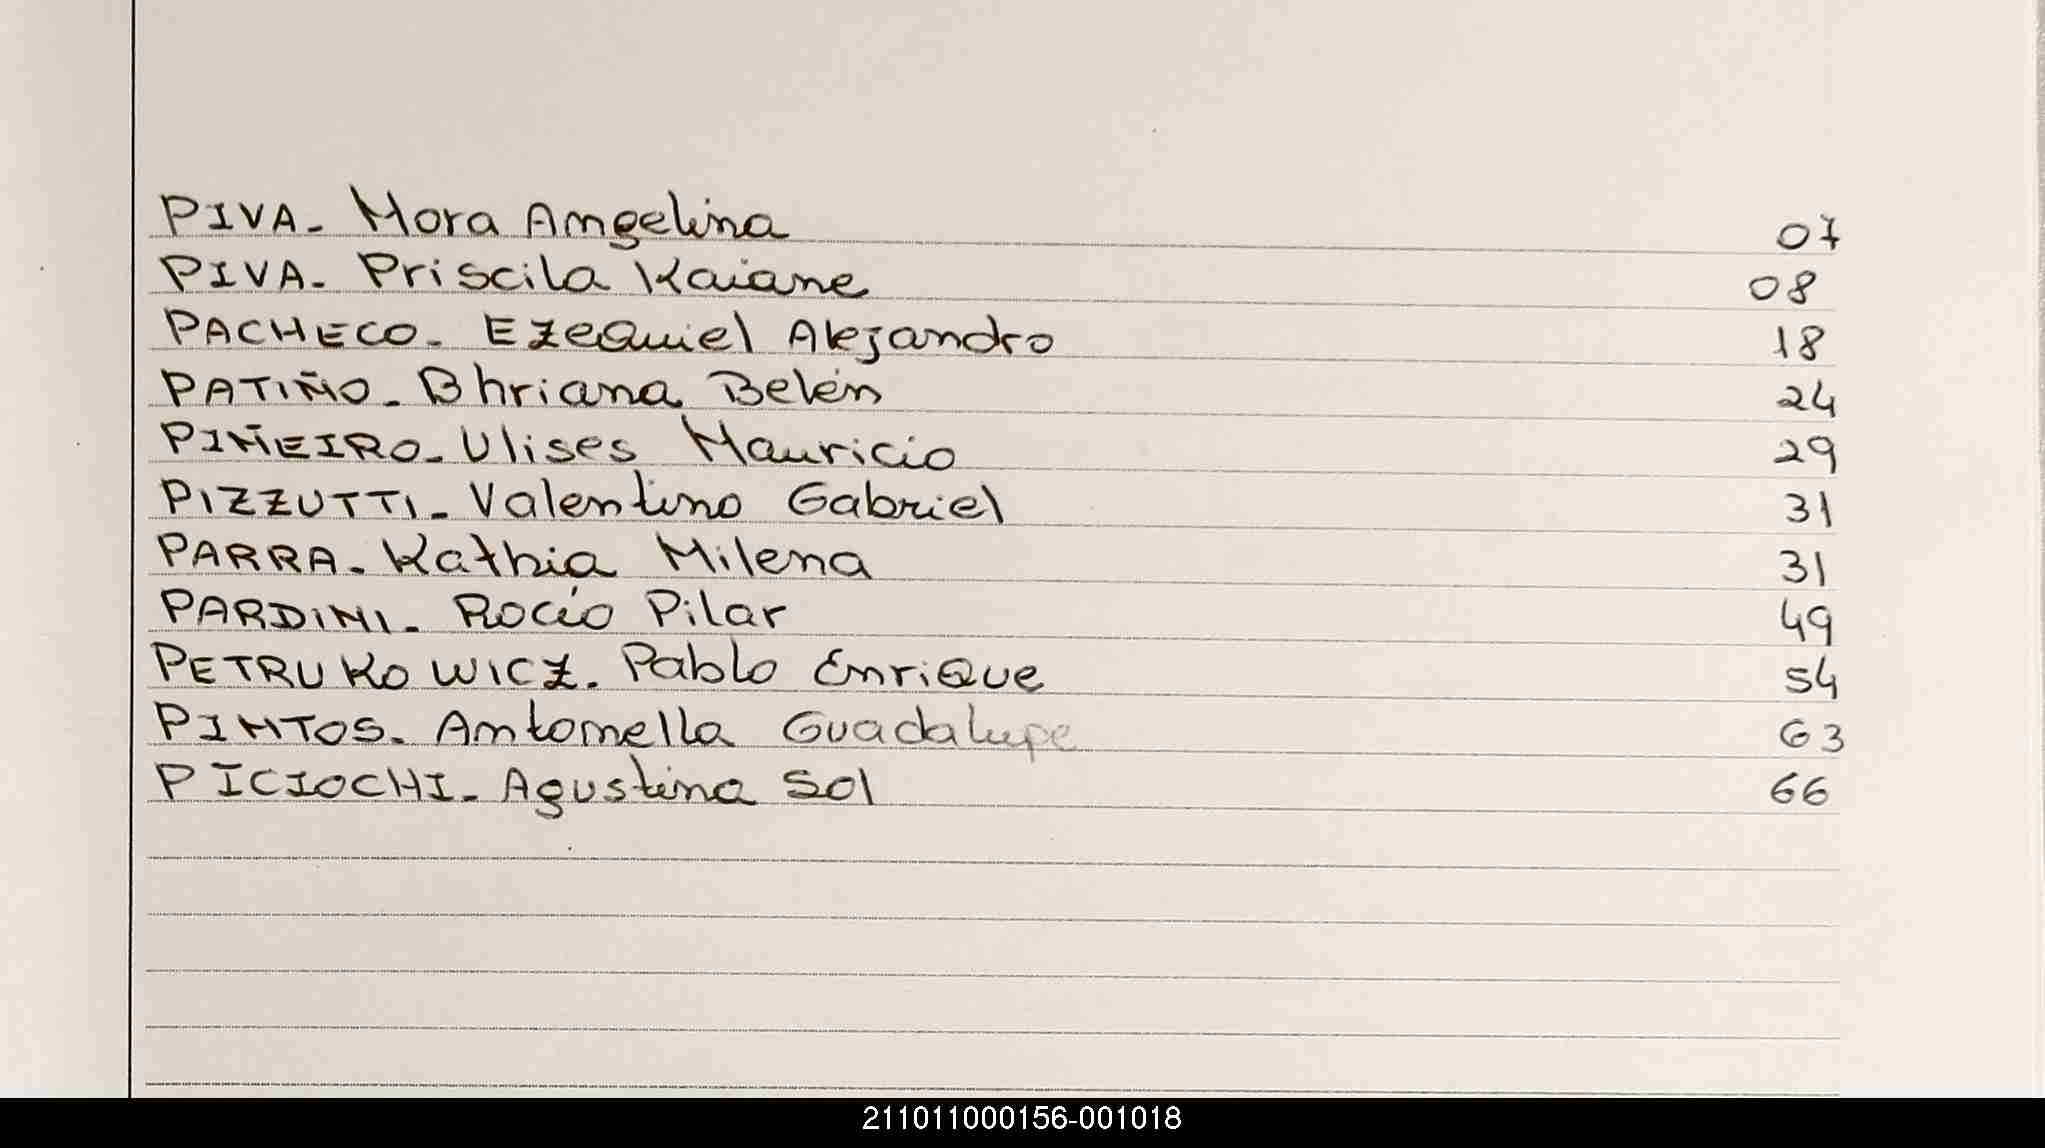 PIVA- Mora Angelina 07
PIVA- Priscila Kaiane 08
PACHECO- EzeQuiel Alejandro 18
PATIÑO- Bhriana Belén 24
PIÑEIRO- Ulises Mauricio 29
PIZZUTTI- Valentino Gabriel 31
PARRA- Kathia Milena 31
PARDINI- Rocío Pilar 49
PETRUKOWICZ- Pablo EnriQue 54
PINTOS- Antonella Guadalupe 63
PICIOCHI- Agustina Sol 66
211011000156-001018